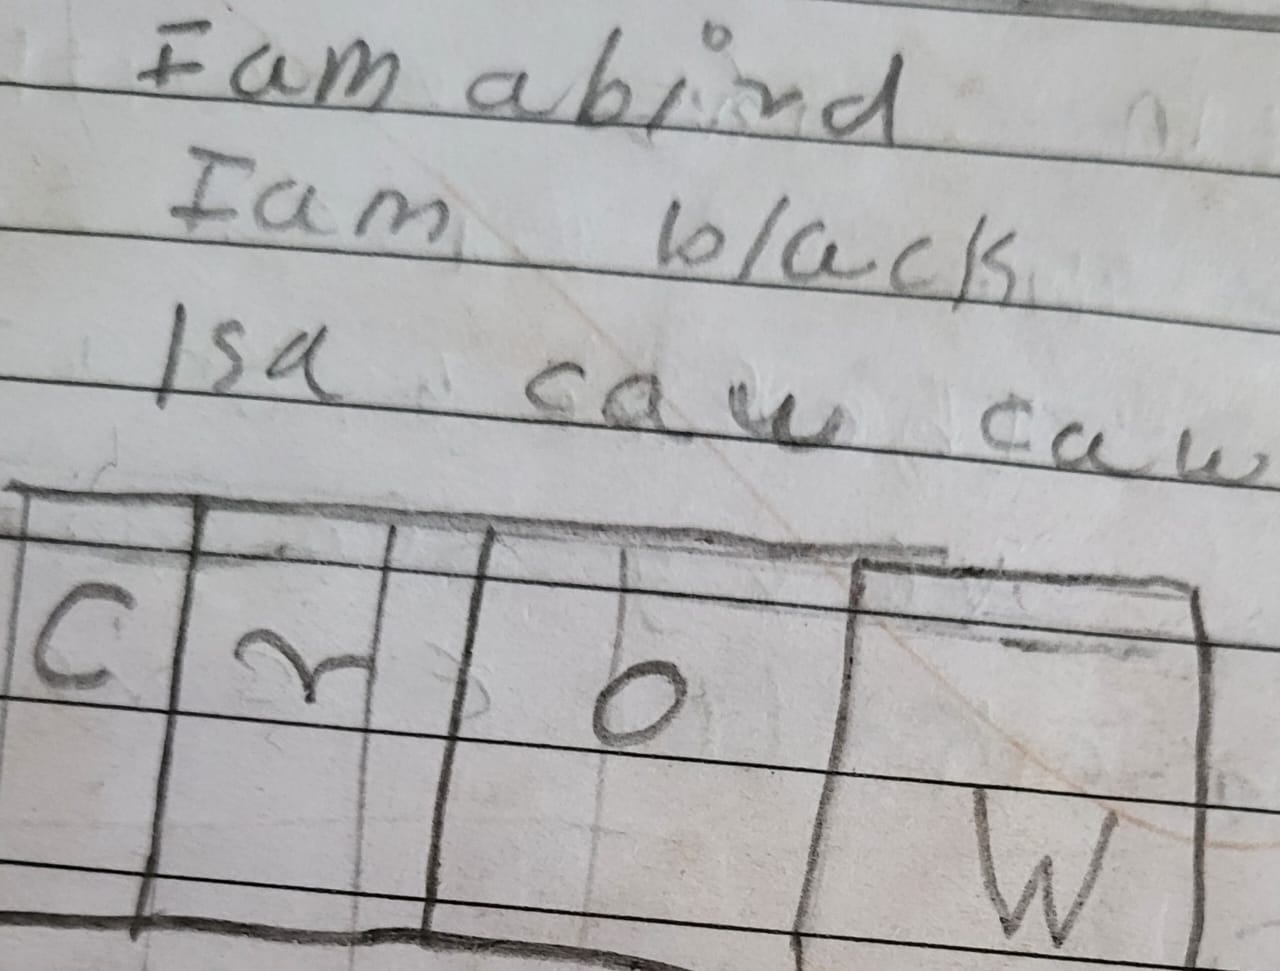 I am a bird
I am black
Isa caw caw
C r o w